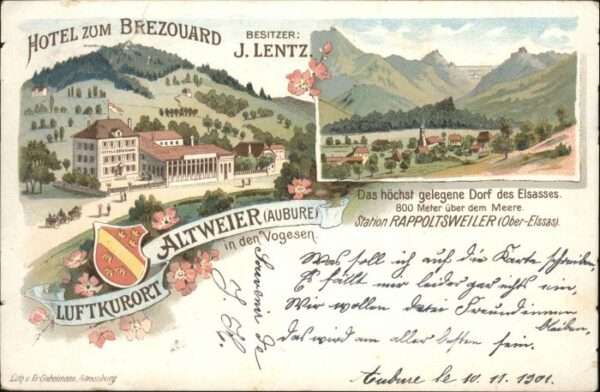 HOTEL ZUM BREZOUARD
BESITZER:
J. LENTZ.
Das höchst gelegene Dorf des Elsasses.
800 Meter über dem Meere.
Station RAPPOLTSWEILER (Ober-Elssas).
ALTWEIER (AUBURE)
in den Vogesen.
LUFTKURORT
Souvenir de
Was soll ich auf die Karte schreiben,
Es fällt mir leider gar nichts ein,
Wir wollen Freundinnen
bleiben,
das wird am aller besten sein.
Aubure le 10. 11. 1901.
Strassburg